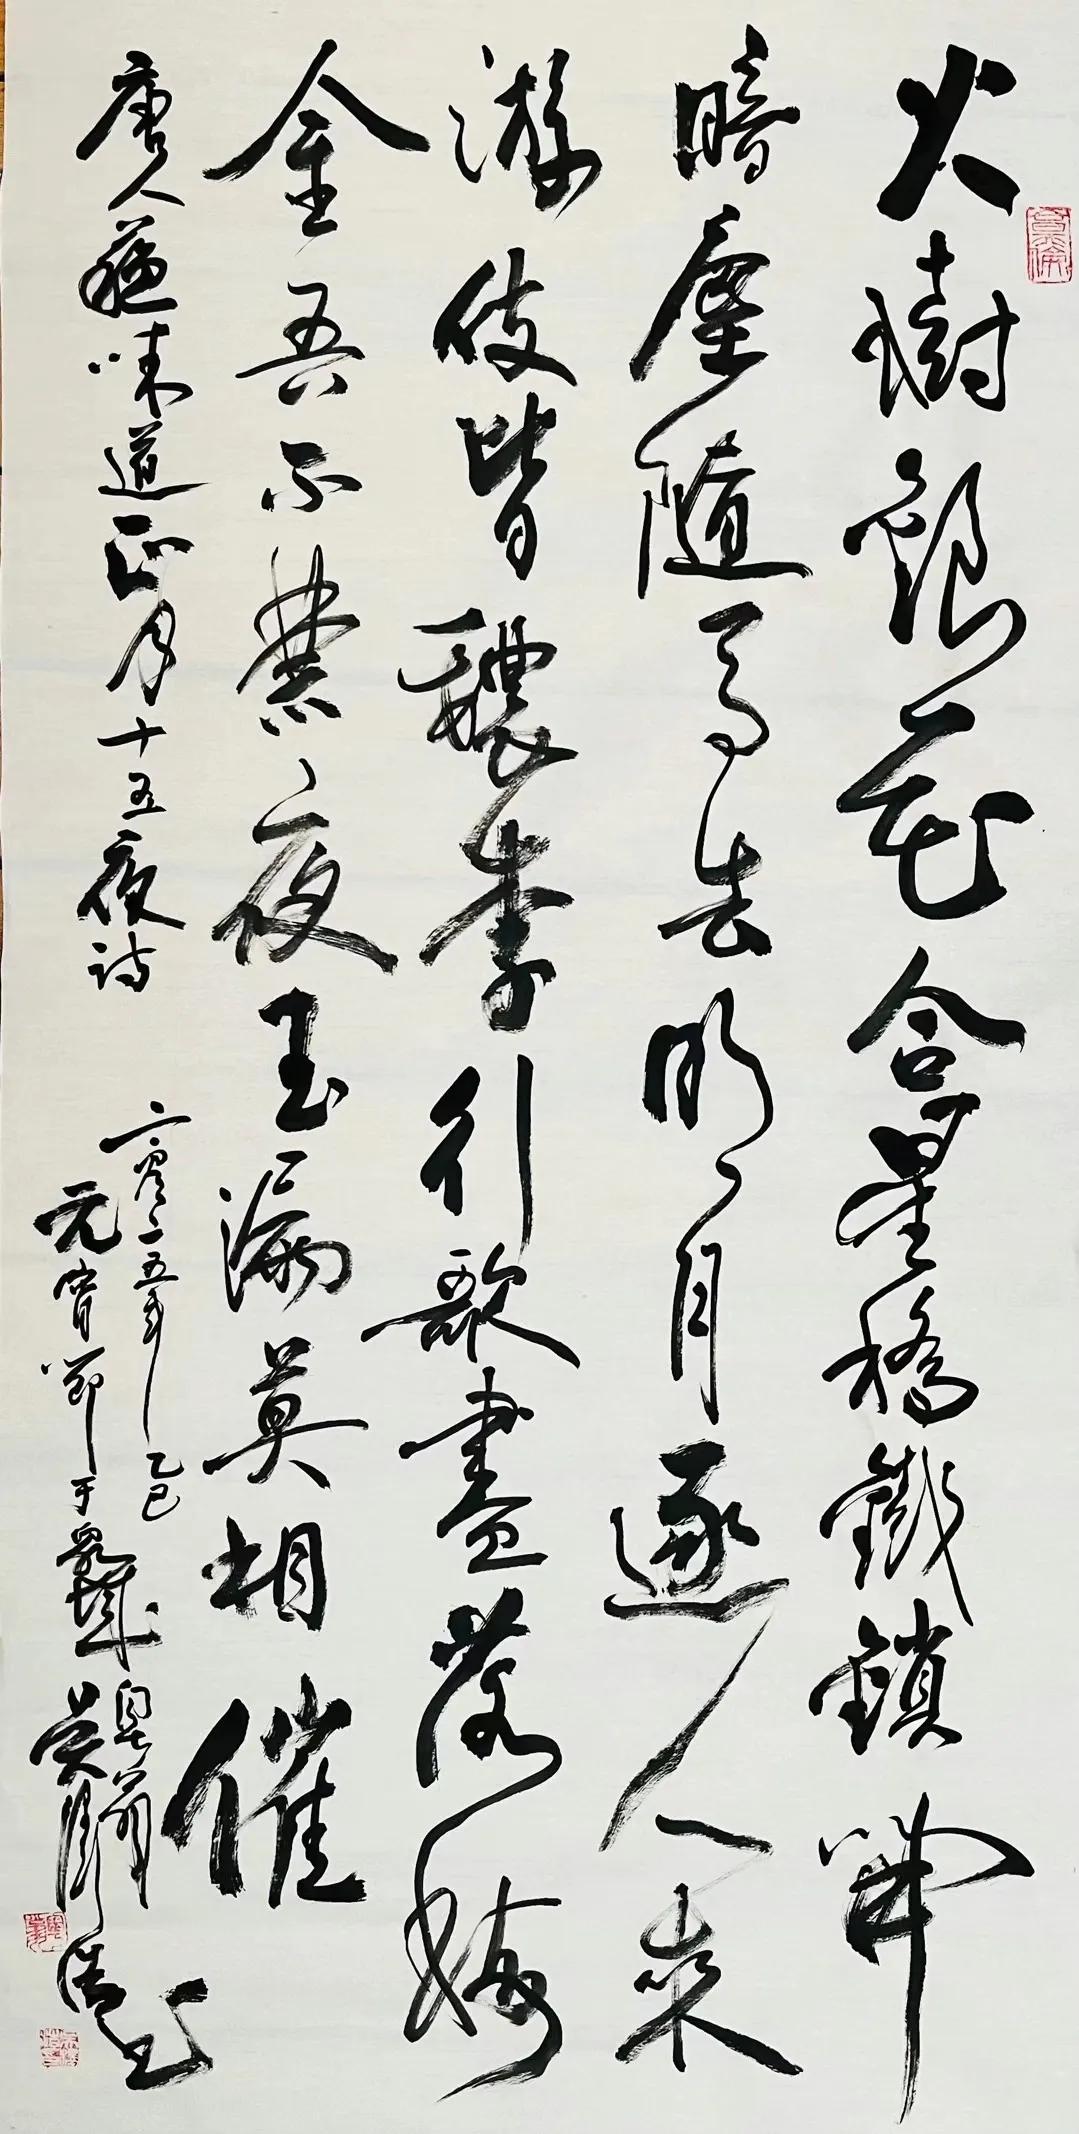 火樹銀花合星橋鐵鎖開
暗塵隨馬去明月逐人來
游伎皆穠李行歌盡落梅
金吾不禁夜玉漏莫相催
唐人蘇味道正月十五夜詩
二零二五年乙巳
元宵節于